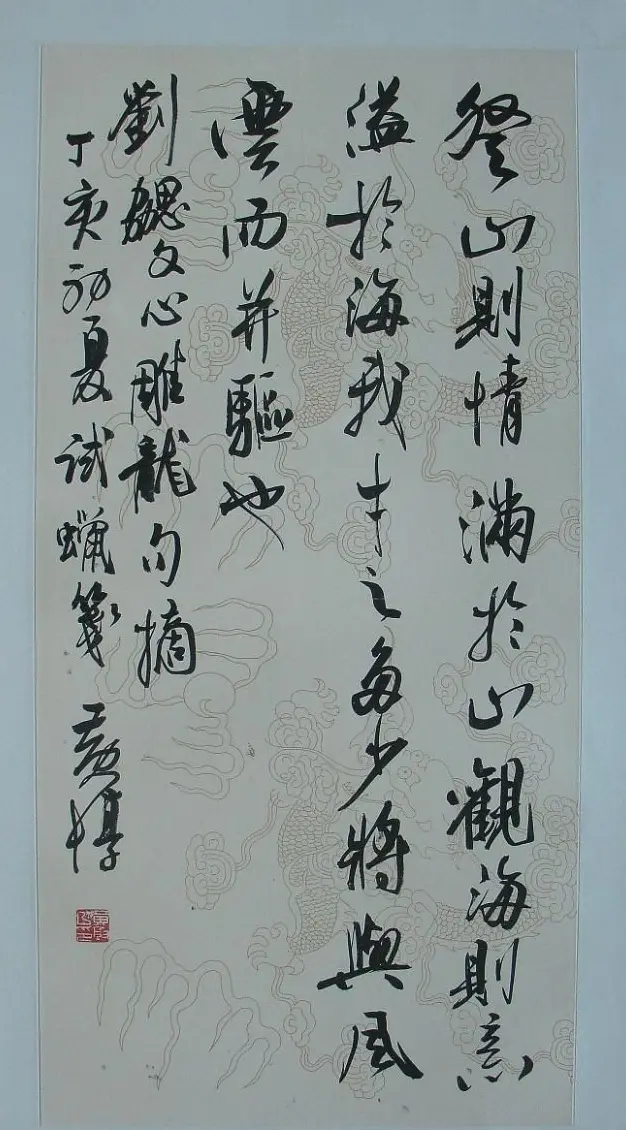 登山則情滿於山觀海則意
溢於海我才之多少將與風
雲而并驅也
劉勰文心雕龍句摘
丁亥初夏试蠟箋 黄惇